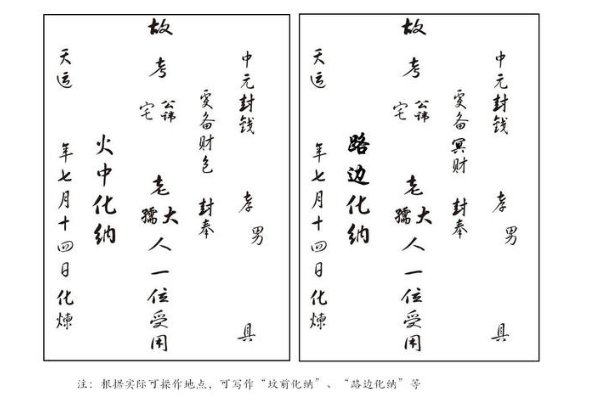 中元封钱 孝男 具
虔备财包 封奉
故考 公讳 宅 老大 孺人一位受用
火中化纳
天运 年七月十四日化炼
中元封钱 孝男 具
虔备冥财 封奉
故考 公讳 宅 老大 孺人一位受用
路边化纳
天运 年七月十四日化炼
注：根据实际可操作地点，可写作“坟前化纳”、“路边化纳”等